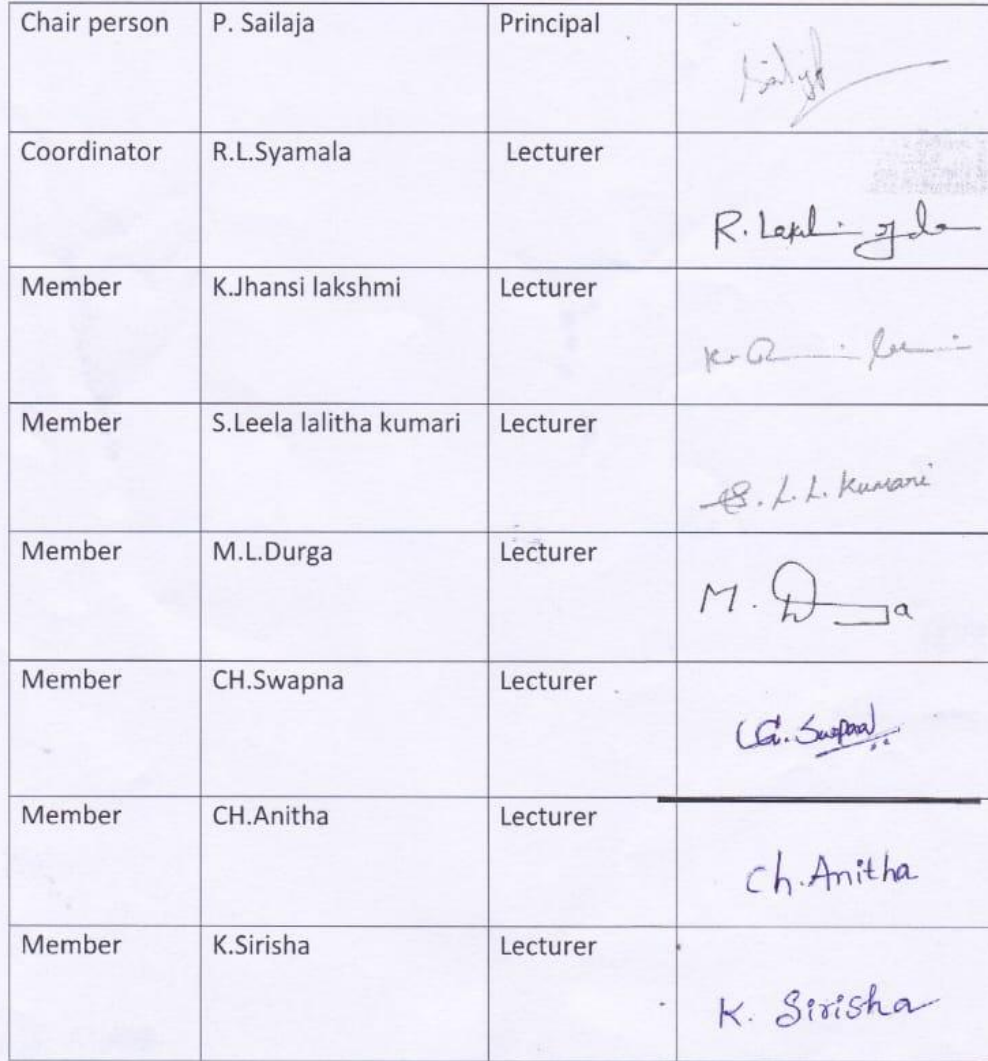 Chair person P. Sailaja Principal
Coordinator R.L.Syamala Lecturer
R.
Member K.Jhansi lakshmi Lecturer
Member S.Leela lalitha kumari Lecturer
S. L. L. Kumari
Member M.L.Durga Lecturer
M.
Member CH.Swapna Lecturer
Member CH.Anitha Lecturer
Ch.Anitha
Member K.Sirisha Lecturer
K. Sirisha